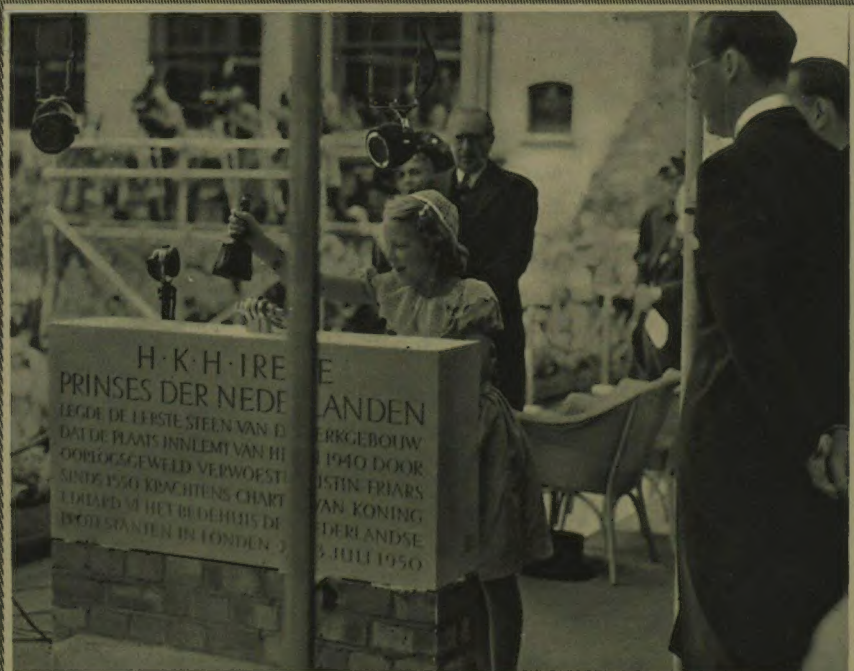 H·K·H·IRE E
PRINSES DER NEDE LANDEN
LEGDE DE EERSTE STEEN VAN D ERKGEBOUW
DAT DE PLAATS INNEEMT VAN HE 1940 DOOR
OORLOGSGEWELD VERWOEST USTIN FRIARS
SINDS 1550 KRACHTENS CHART VAN KONING
EDUARD VI HET BEDEHUIS DE EDERLANDSE
PROTESTANTEN IN LONDEN JULI 1950